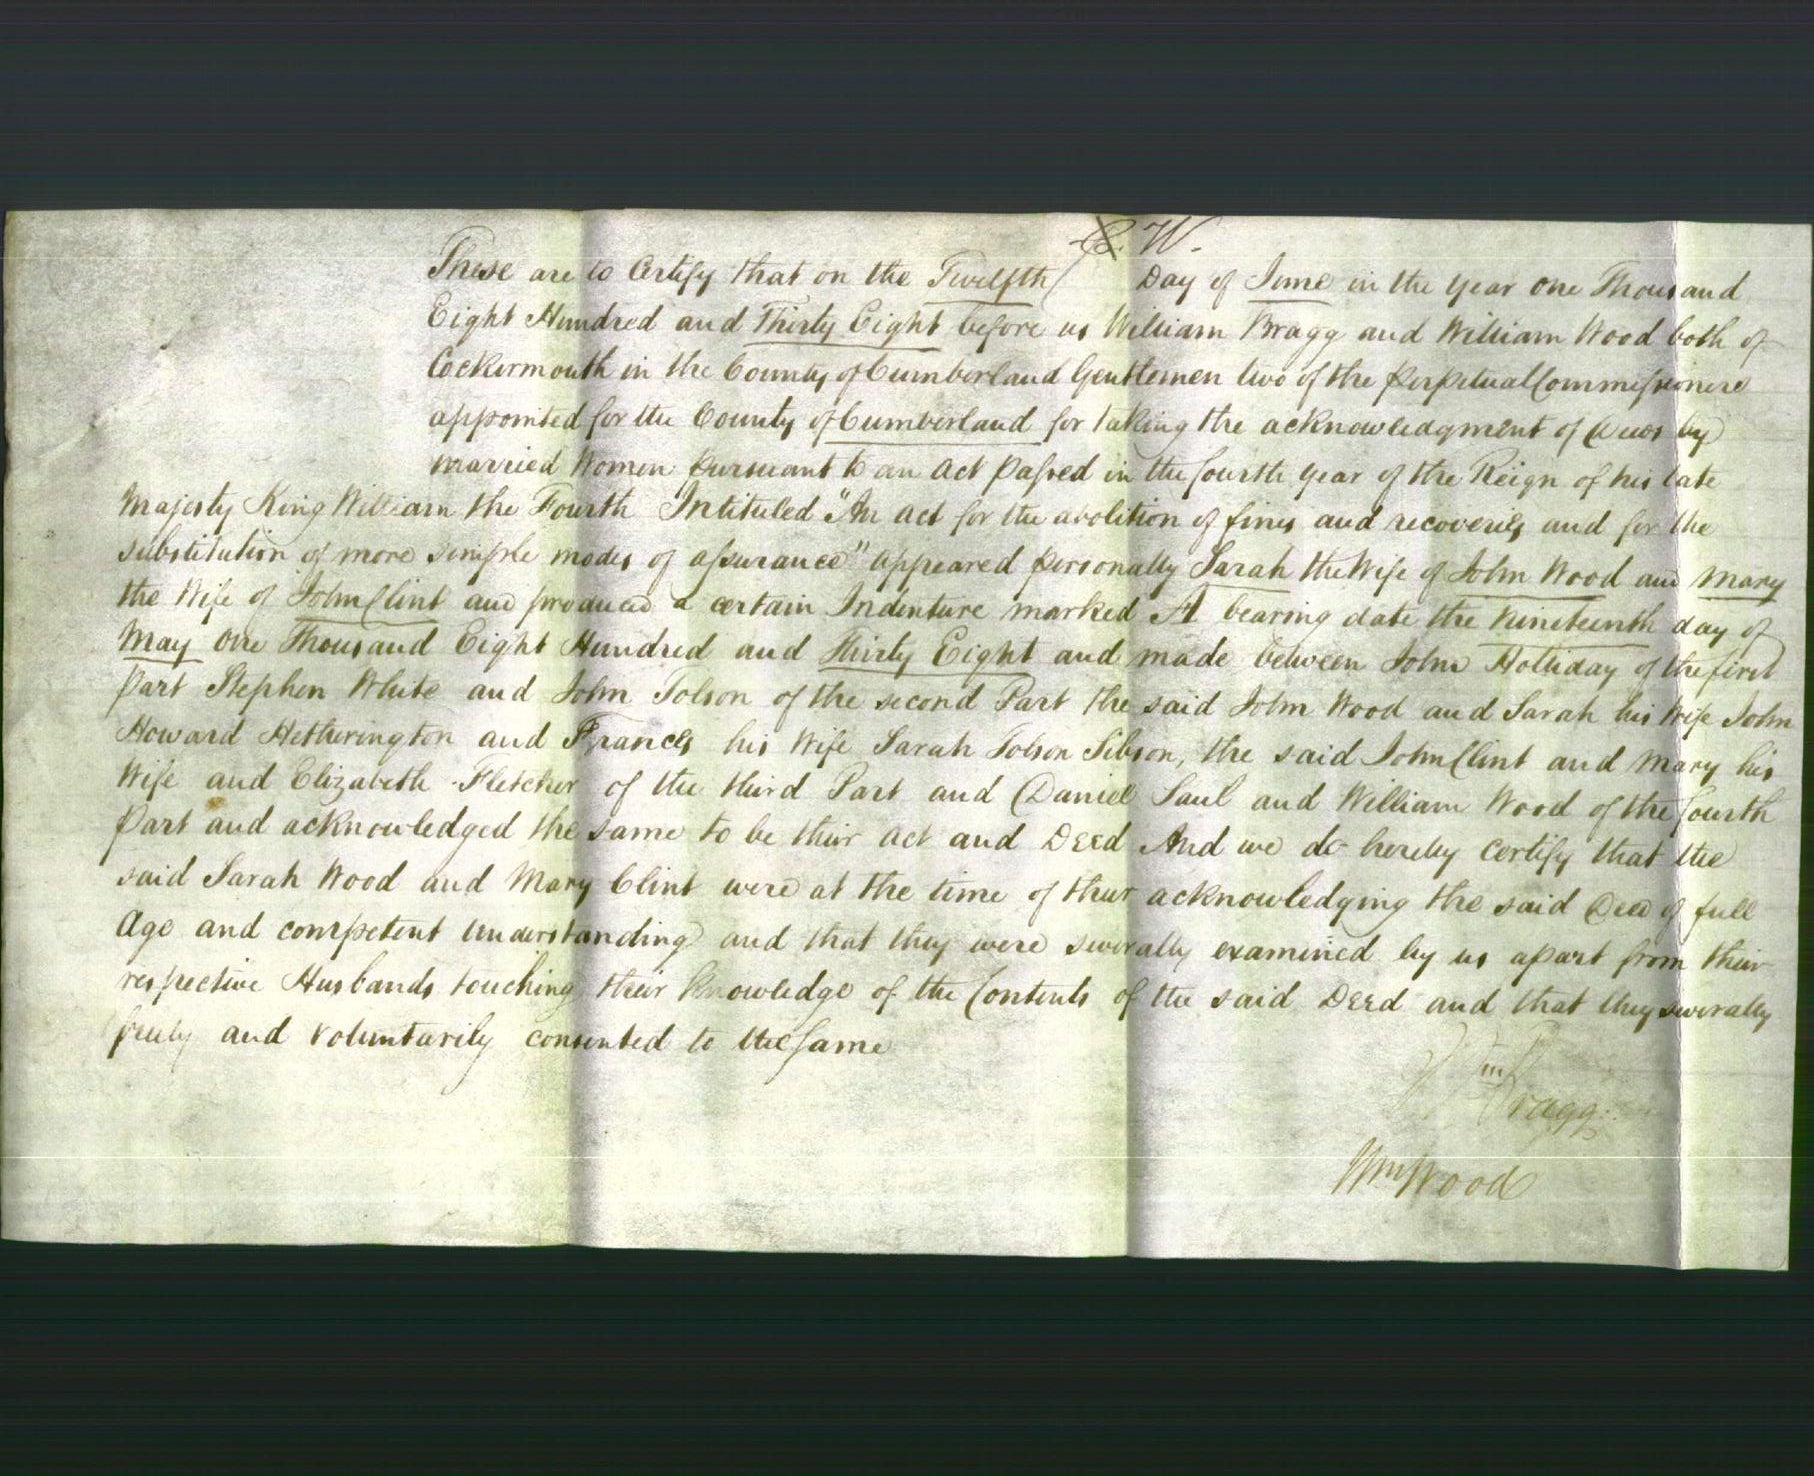 C. W.
These are to Certify that on the Twelfth Day of June in the year One Thousand
Eight Hundred and Thirty Eight before us William Bragg and William Wood both of
Cockermouth in the County of Cumberland Gentlemen two of the perpetual Commissioners
appointed for the County of Cumberland for taking the acknowledgment of Deeds by
married Women pursuant to an Act passed in the fourth year of the Reign of his late
Majesty King William the Fourth Intituled "An Act for the abolition of fines and recoveries and for the
substitution of more simple modes of assurance" appeared personally Sarah the Wife of John Wood and Mary
the Wife of John Clint and produced a certain Indenture marked A bearing date the nineteenth day of
May One Thousand Eight Hundred and Thirty Eight and made between John Holliday of the first
part Stephen White and John Tolson of the second Part the said John Wood and Sarah his Wife John
Howard Hetherington and Frances his Wife Sarah Tolson Sibson, the said John Clint and Mary his
Wife and Elizabeth Fletcher of the third Part and Daniel Saul and William Wood of the fourth
Part and acknowledged the same to be their act and Deed And we do hereby certify that the
said Sarah Wood and Mary Clint were at the time of their acknowledging the said Deed of full
Age and competent understanding and that they were severally examined by us apart from their
respective Husbands touching their knowledge of the Contents of the said Deed and that they severally
freely and voluntarily consented to the same
Wm Bragg
Wm Wood